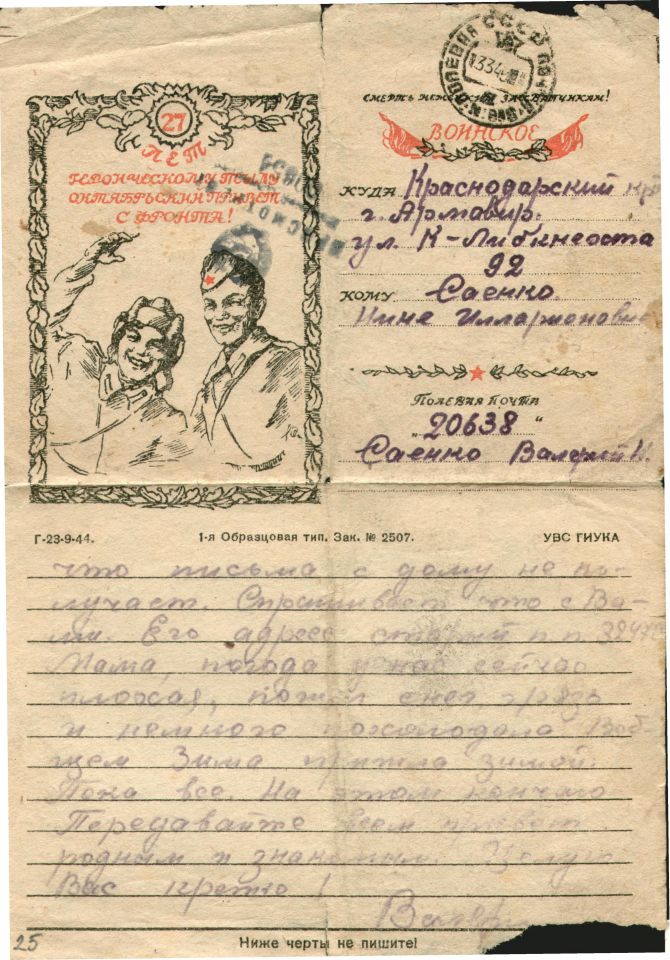 27
ЛЕТ
ГЕРОИЧЕСКОМУ ТЫЛУ
ОКТЯБРЬСКИЙ ПРИВЕТ
С ФРОНТА!
СССР
СМЕРТЬ НЕМЕЦКИМ ЗАХВАТЧИКАМ!
ВОИНСКОЕ
КУДА Краснодарский
г. Армавир.
ул. К-Либкнехта
92
КОМУ Саенко
Нине Илларионовне
ПОЛЕВАЯ ПОЧТА
"20638"
Саенко Валерий И.
Г-23-9-44. 1-я Образцовая тип. Зак. № 2507. УВС ГИУКА
что письма с дому не по-
лучает. Спрашивает что с Ва-
ми. Его адрес старый п.п.
Мама, погода у нас сейчас
плохая, пошел снег, грязь
и немного похолодало Воб-
щем Зима пришла зимой.
Пока все. На этом кончаю
Передавайте всем привет
родным и знакомым. Целую
Вас крепко!
25
Ниже черты не пишите!